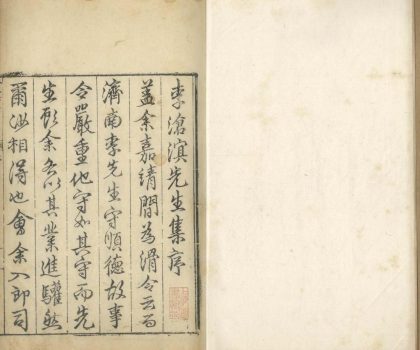 李滄溟先生集序
蓋余嘉靖間為滑令云而
濟南李先生守順德故事
令嚴重他守如其守而先
生所余各以其業進驩然
爾汝相得也會余入郎司